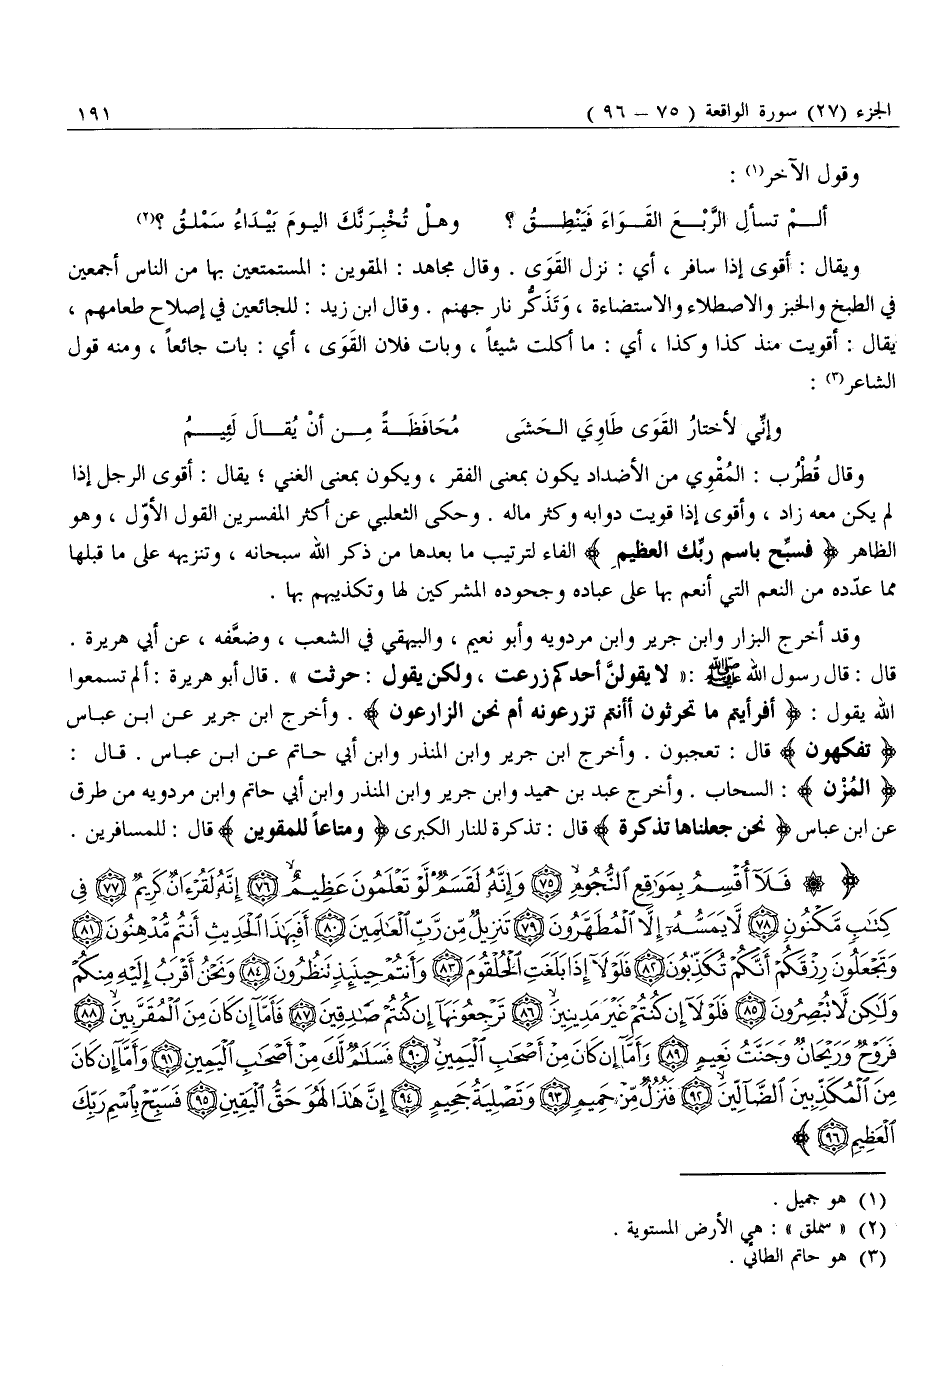 الجزء (٢٧) سورة الواقعة ( ٧٥ – ٩٦ ) ١٩١
وقول الآخر(١) :
ألـــمْ تسألِ الرَّبْــعَ القَــواءَ فَيَنْطِــقُ ؟ وهـلْ تُخْبِرَنَّكَ اليـومَ بَيْدَاءُ سَمْلـقُ ؟(٢)
ويقال : أقوى إذا سافر ، أي : نزل القَوَى . وقال مجاهد : المقوين : المستمتعين بها من الناس أجمعين
في الطبخ والخبز والاصطلاء والاستضاءة ، وَتَذَكُّر نار جهنم . وقال ابن زيد : للجائعين في إصلاح طعامهم ،
يقال : أقويت منذ كذا وكذا ، أي : ما أكلت شيئاً ، وبات فلان القَوَى ، أي : بات جائعاً ، ومنه قول
الشاعر(٣) :
وإنّي لأختارُ القَوَى طَاوِيَ الـحَشَى مُحَافَظَــةً مِــن أنْ يُقــالَ لَئِيــمُ
وقال قُطْرُب : المُقْوِي من الأضداد يكون بمعنى الفقر ، ويكون بمعنى الغني ؛ يقال : أقوى الرجل إذا
لم يكن معه زاد ، وأقوى إذا قويت دوابه وكثر ماله . وحكى الثعلبي عن أكثر المفسرين القول الأوّل ، وهو
الظاهر ﴿ فسبِّح باسم ربِّك العظيم ﴾ الفاء لترتيب ما بعدها من ذكر الله سبحانه ، وتنزيهه على ما قبلها
مما عدّده من النعم التي أنعم بها على عباده وجحوده المشركين لها وتكذيبهم بها .
وقد أخرج البزار وابن جرير وابن مردويه وأبو نعيم ، والبيهقي في الشعب ، وضعَّفه ، عن أبي هريرة .
قال : قال رسول الله ﷺ :« لا يقولنَّ أحدكم زرعت ، ولكن يقول : حرثت » . قال أبو هريرة : ألم تسمعوا
الله يقول : ﴿ أفرأيتم ما تحرثون أأنتم تزرعونه أم نحن الزارعون ﴾ . وأخرج ابن جرير عـن ابـن عبـاس
﴿ تفكهون ﴾ قال : تعجبون . وأخرج ابن جرير وابن المنذر وابن أبي حـاتم عـن ابـن عبـاس . قـال :
﴿ المُزْن ﴾ : السحاب . وأخرج عبد بن حميد وابن جرير وابن المنذر وابن أبي حاتم وابن مردويه من طرق
عن ابن عباس ﴿ نحن جعلناها تذكرة ﴾ قال : تذكرة للنار الكبرى ﴿ ومتاعاً للمقوين ﴾ قال : للمسافرين .
﴿ ۞ فَلَآ أُقْسِمُ بِمَوَٰقِعِ ٱلنُّجُومِ ۝٧٥ وَإِنَّهُۥ لَقَسَمٌ لَّوْ تَعْلَمُونَ عَظِيمٌ ۝٧٦ إِنَّهُۥ لَقُرْءَانٌ كَرِيمٌ ۝٧٧ فِى
كِتَٰبٍ مَّكْنُونٍ ۝٧٨ لَّا يَمَسُّهُۥٓ إِلَّا ٱلْمُطَهَّرُونَ ۝٧٩ تَنزِيلٌ مِّن رَّبِّ ٱلْعَٰلَمِينَ ۝٨٠ أَفَبِهَٰذَا ٱلْحَدِيثِ أَنتُم مُّدْهِنُونَ ۝٨١
وَتَجْعَلُونَ رِزْقَكُمْ أَنَّكُمْ تُكَذِّبُونَ ۝٨٢ فَلَوْلَآ إِذَا بَلَغَتِ ٱلْحُلْقُومَ ۝٨٣ وَأَنتُمْ حِينَئِذٍ تَنظُرُونَ ۝٨٤ وَنَحْنُ أَقْرَبُ إِلَيْهِ مِنكُمْ
وَلَٰكِن لَّا تُبْصِرُونَ ۝٨٥ فَلَوْلَآ إِن كُنتُمْ غَيْرَ مَدِينِينَ ۝٨٦ تَرْجِعُونَهَآ إِن كُنتُمْ صَٰدِقِينَ ۝٨٧ فَأَمَّآ إِن كَانَ مِنَ ٱلْمُقَرَّبِينَ ۝٨٨
فَرَوْحٌ وَرَيْحَانٌ وَجَنَّتُ نَعِيمٍ ۝٨٩ وَأَمَّآ إِن كَانَ مِنْ أَصْحَٰبِ ٱلْيَمِينِ ۝٩٠ فَسَلَٰمٌ لَّكَ مِنْ أَصْحَٰبِ ٱلْيَمِينِ ۝٩١ وَأَمَّآ إِن كَانَ
مِنَ ٱلْمُكَذِّبِينَ ٱلضَّآلِّينَ ۝٩٢ فَنُزُلٌ مِّنْ حَمِيمٍ ۝٩٣ وَتَصْلِيَةُ جَحِيمٍ ۝٩٤ إِنَّ هَٰذَا لَهُوَ حَقُّ ٱلْيَقِينِ ۝٩٥ فَسَبِّحْ بِٱسْمِ رَبِّكَ
ٱلْعَظِيمِ ۝٩٦ ﴾
(١) هو جميل .
(٢) « سملق » : هي الأرض المستوية .
(٣) هو حاتم الطائي .